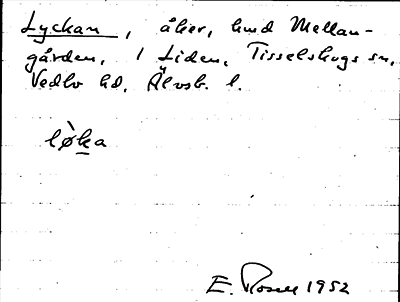 Lyckan, åker, hmd Mellan-
gården, 1 Liden, Tisselskogs sn,
Vedbo hd, Älvsb. l.
lø̀ka
E. Rosell 1952